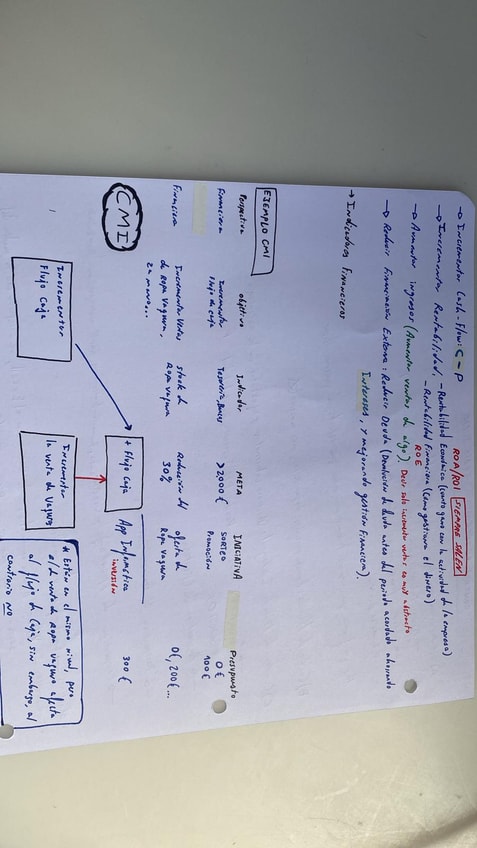 → Incrementar Cash-Flow: C - P
ROA/ROI SIEMPRE SALEN
→ Incrementar Rentabilidad, - Rentabilidad Económica (cuanto gano con la actividad de la empresa)
- Rentabilidad Financiera (cómo gestiona el dinero)
ROE
→ Aumentar ingresos (Aumentar ventas de algo). Decir solo incrementar ventas es muy abstracto
→ Reducir Financiación Externa: Reducir Deuda (Devolución de deuda antes del periodo acordado ahorrando
Intereses, y mejorando gestión financiera).
→ Indicadores Financieros
EJEMPLO CMI
Perspectiva Objetivo Indicador META INICIATIVA Presupuesto
Financiera Incrementar Flujo de caja Tesorería, Bancos >2,000 € SORTEO 0 €
Promoción 100 €
Financiera Incrementar Ventas de Ropa vaquera, en marzo... Stock de Ropa vaquera Reducción del 30% oferta de Ropa vaquera 0€, 200€...
+ Flujo Caja App Informática 300 €
inversión
CMI
Incrementar
Flujo Caja
Incrementar
la venta de vaqueros
* Están en el mismo nivel, pero
el de venta de ropa vaquera afecta
al flujo de caja, sin embargo, al
contrario NO